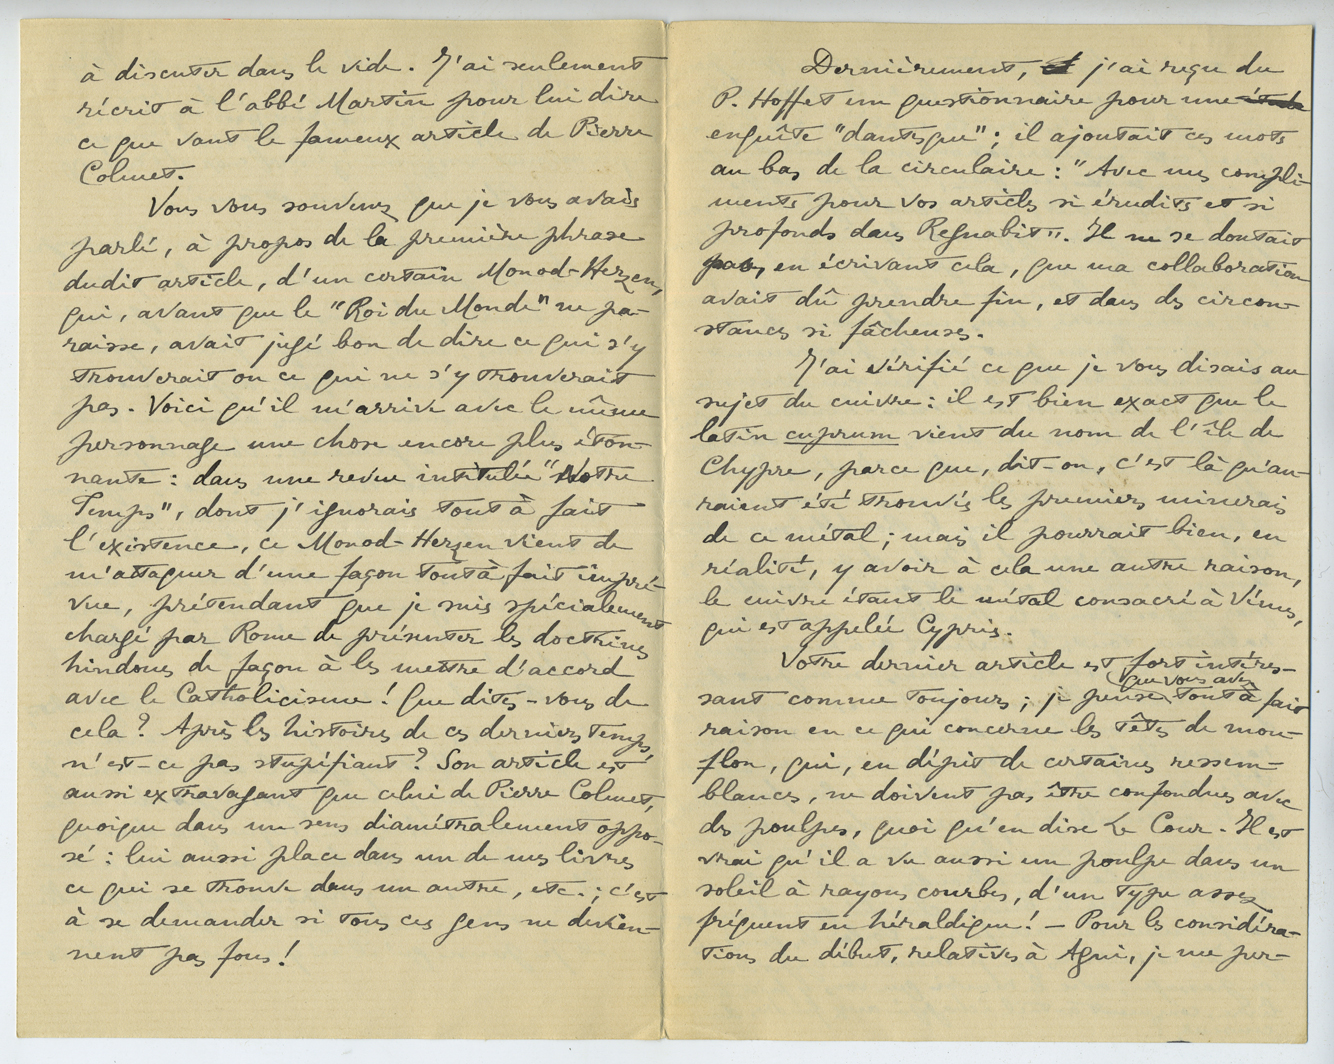 à discuter dans le vide. J'ai seulement
récrit à l'abbé Martin pour lui dire
ce que vaut le fameux article de Pierre
Colmet.
Vous vous souvenez que je vous avais
parlé, à propos de la première phrase
dudit article, d'un certain Monod-Herzen,
qui, avant que le "Roi du Monde" ne pa-
raisse, avait jugé bon de dire ce qui s'y
trouverait ou ce qui ne s'y trouverait
pas. Voici qu'il m'arrive avec le même
personnage une chose encore plus éton-
nante : dans une revue intitulée "Notre
Temps", dont j'ignorais tout à fait
l'existence, ce Monod-Herzen vient de
m'attaquer d'une façon tout à fait impré-
vue, prétendant que je suis spécialement
chargé par Rome de présenter les doctrines
hindoues de façon à les mettre d'accord
avec le Catholicisme ! Que dites-vous de
cela ? Après les histoires de ces derniers temps,
n'est-ce pas stupéfiant ? Son article est
aussi extravagant que celui de Pierre Colmet,
quoique dans un sens diamétralement oppo-
sé : lui aussi place dans un de mes livres
ce qui se trouve dans un autre, etc. ; c'est
à se demander si tous ces gens ne devien-
nent pas fous !
Dernièrement, j'ai reçu du
P. Hoffet un questionnaire pour une étude
enquête "dantesque" ; il ajoutait ces mots
au bas de la circulaire : "Avec mes compli-
ments pour vos articles si érudits et si
profonds dans Regnabit". Il ne se doutait
pas, en écrivant cela, que ma collaboration
avait dû prendre fin, et dans des circon-
stances si fâcheuses.
J'ai vérifié ce que je vous disais au
sujet du cuivre : il est bien exact que le
latin cuprum vient du nom de l'île de
Chypre, parce que, dit-on, c'est là qu'au-
raient été trouvés les premiers minerais
de ce métal ; mais il pourrait bien, en
réalité, y avoir à cela une autre raison,
le cuivre étant le métal consacré à Vénus,
qui est appelée Cypris.
Votre dernier article est fort intéres-
sant comme toujours ; je pense que vous avez tout à fait
raison en ce qui concerne les têtes de mou-
flon, qui, en dépit de certaines ressem-
blances, ne doivent pas être confondues avec
des poulpes, quoi qu'en dise Le Cour. Il est
vrai qu'il a vu aussi un poulpe dans un
soleil à rayons courbes, d'un type assez
fréquent en héraldique ! — Pour les considéra-
tions du début, relatives à Agni, je me per-